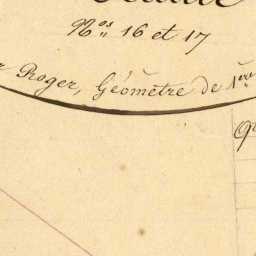 Nos 16 et 17
Roger, Géomètre de 1ère